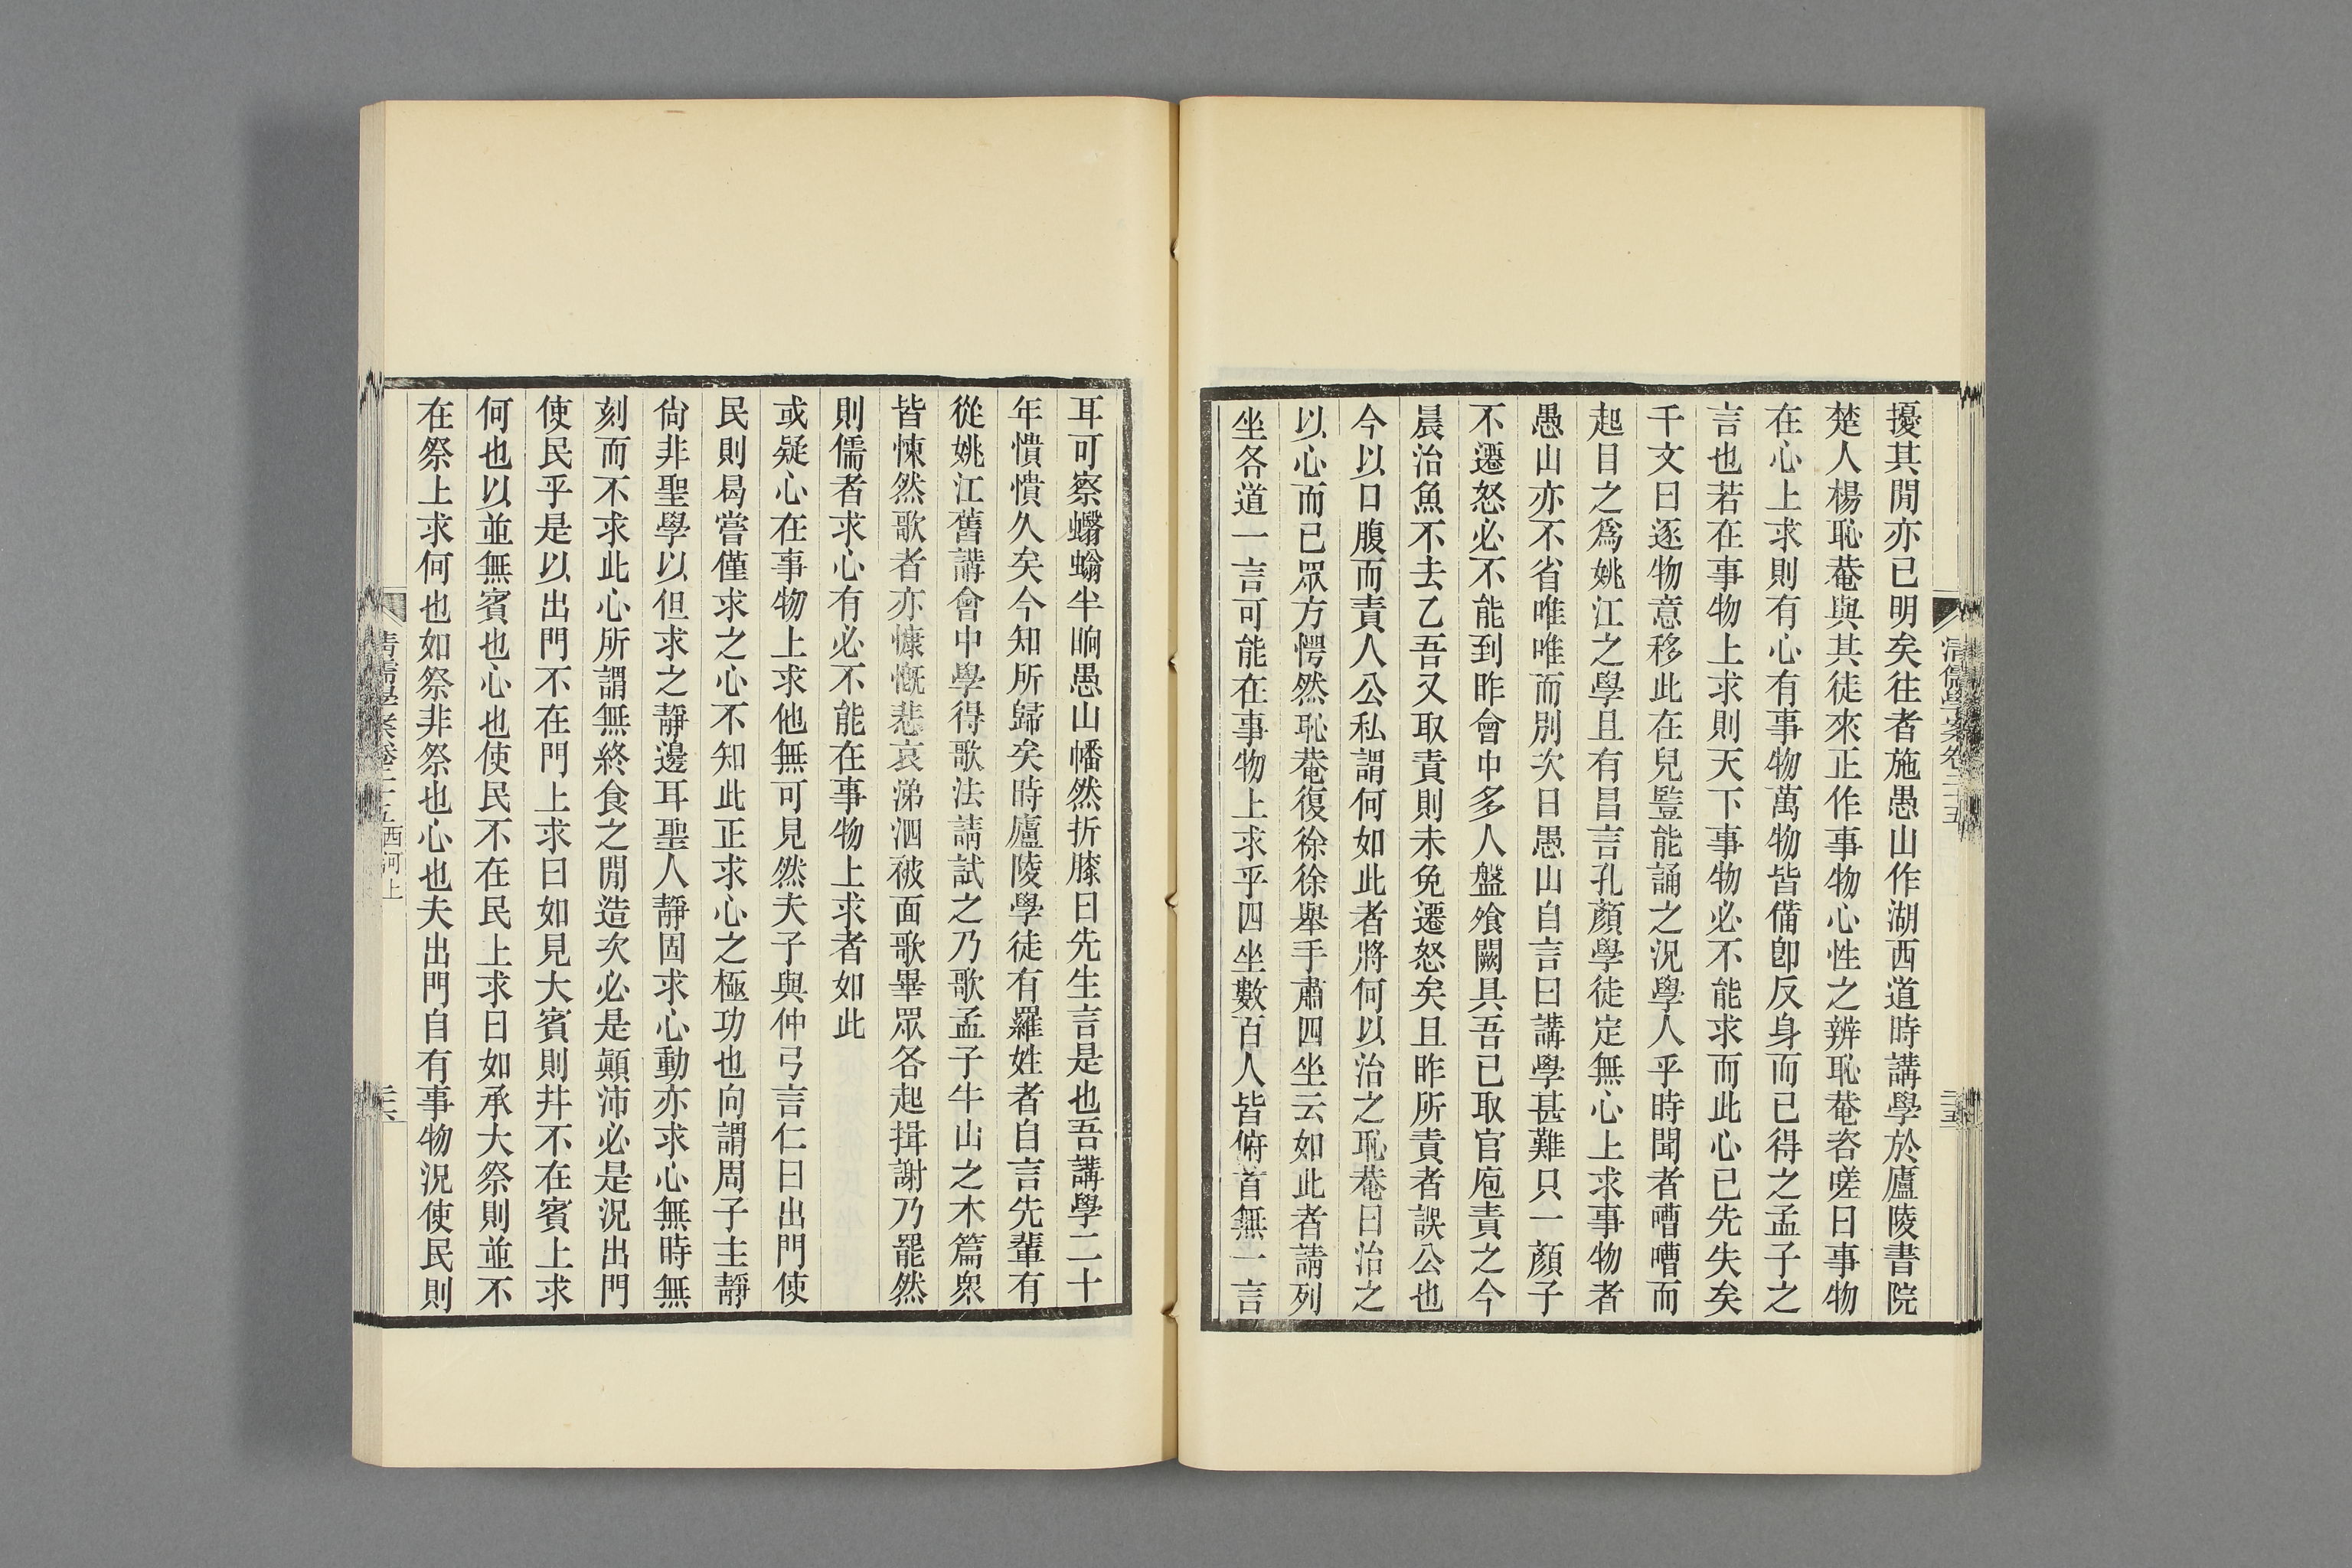 擾其閒亦已明矣往者施愚山作湖西道時講學於廬陵書院
楚人楊恥菴與其徒來正作事物心性之辨恥菴咨嗟曰事物
在心上求則有心有事物萬物皆備卽反身而已得之孟子之
言也若在事物上求則天下事物必不能求而此心已先失矣
千文曰逐物意移此在兒豎能誦之況學人乎時聞者嘈嘈而
起目之爲姚江之學且有昌言孔顏學徒定無心上求事物者
愚山亦不省唯唯而別次日愚山自言曰講學甚難只一顏子
不遷怒必不能到昨會中多人盤飧闕具吾已取官庖責之今
晨治魚不去乙吾又取責則未免遷怒矣且昨所責者誤公也
今以口腹而責人公私謂何如此者將何以治之恥菴曰治之
以心而已眾方愕然恥菴復徐徐舉手肅四坐云如此者請列
坐各道一言可能在事物上求乎四坐數百人皆俯首無一言
清儒學案卷二十五
三五
耳可察蠮螉半晌愚山幡然折膝曰先生言是也吾講學二十
年憒憒久矣今知所歸矣時廬陵學徒有羅姓者自言先輩有
從姚江舊講會中學得歌法請試之乃歌孟子牛山之木篇眾
皆悚然歌者亦慷慨悲哀涕泗被面歌畢眾各起揖謝乃罷然
則儒者求心有必不能在事物上求者如此
或疑心在事物上求他無可見然夫子與仲弓言仁曰出門使
民則曷嘗僅求之心不知此正求心之極功也向謂周子主靜
尙非聖學以但求之靜邊耳聖人靜固求心動亦求心無時無
刻而不求此心所謂無終食之閒造次必是顚沛必是況出門
使民乎是以出門不在門上求曰如見大賓則幷不在賓上求
何也以並無賓也心也使民不在民上求曰如承大祭則並不
在祭上求何也如祭非祭也心也夫出門自有事物況使民則
清儒學案卷二十五 西河上
三六